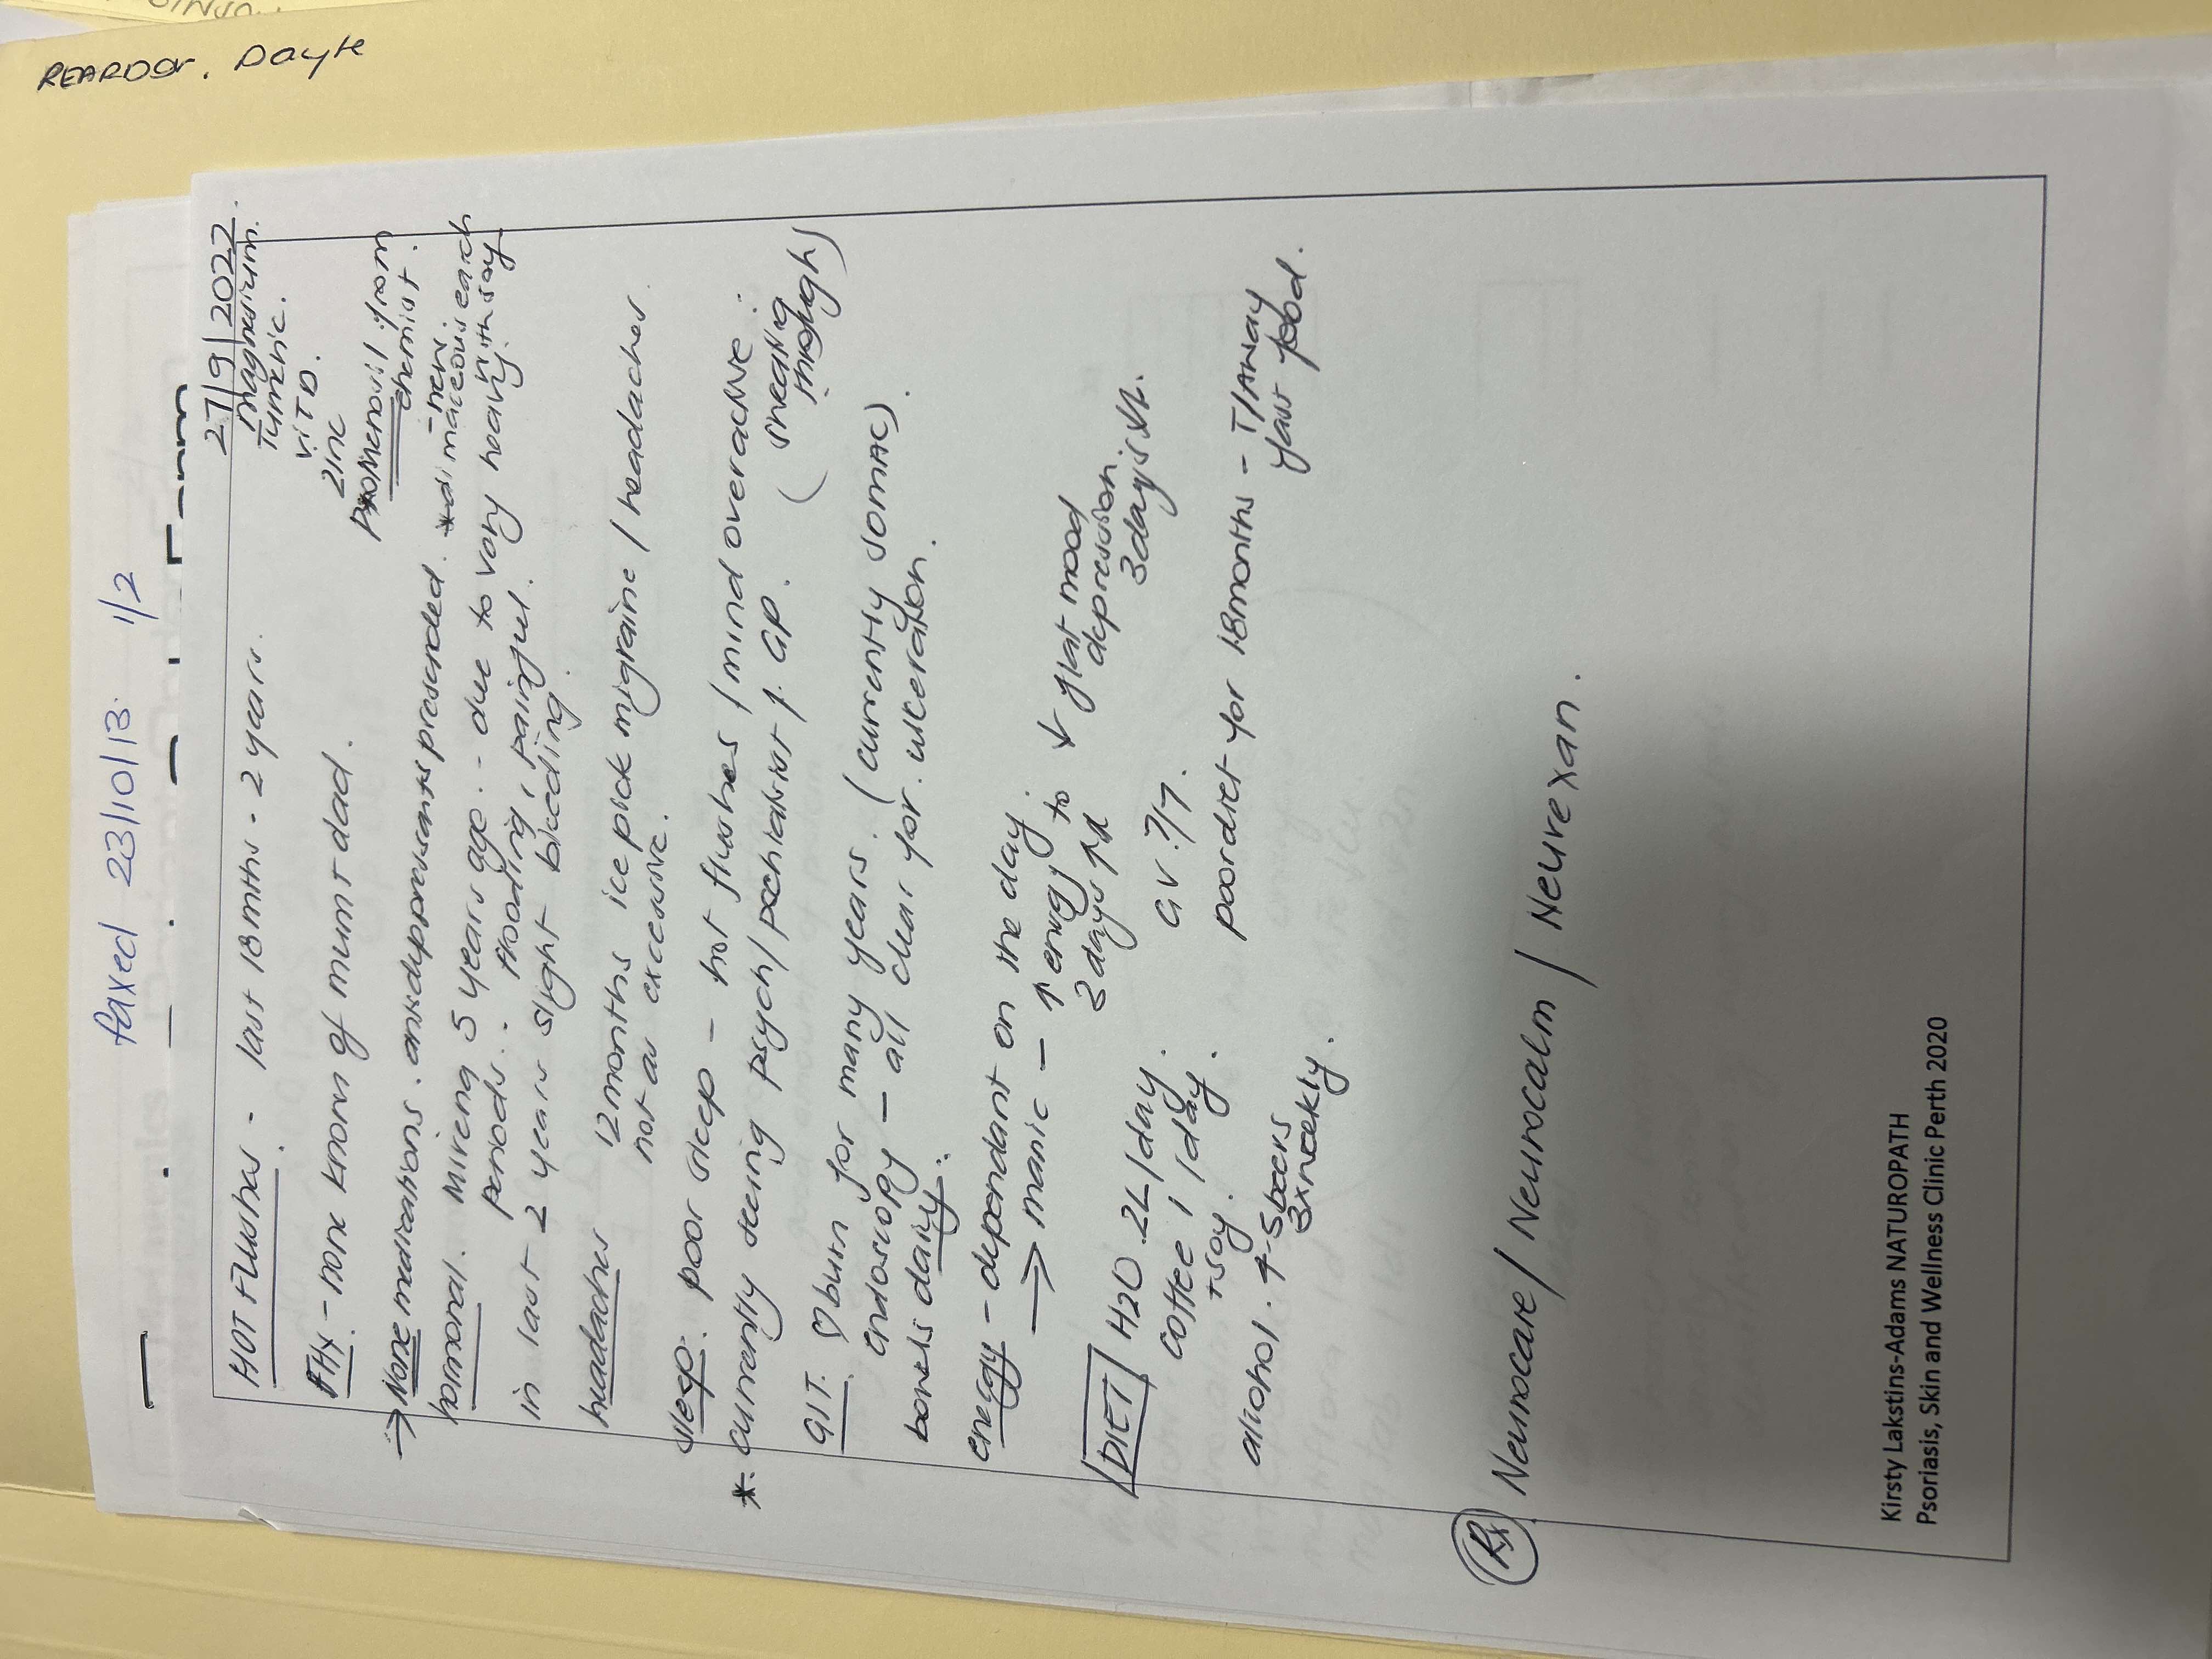 REARDON. Dayle
faxed 23/10/13 1/2
27/9/2022
HOT FLUSHES - last 18mths - 2 years.
magnesium.
Tumeric.
VIT D.
ZINC
PROMENSIL from
chemist.
FHx - none known of mum + dad.
→ None medications. antidepressants prescribed.
hormonal. Mirena 5 years ago. - due to very heavy
periods. - flooding, painful.
in last 2 years slight bleeding.
headaches 12 months ice pick migraine / headaches.
not as excessive.
sleep. poor sleep - hot flushes / mind overactive.
(sweating
through)
* currently seeing psych / GP.
GIT. ♡burn for many years. (currently SOMAC).
endoscopy - all clear for ulceration.
bowels daily.
energy - dependant on the day.
→ manic - ↑ energy to ↓ flat mood
depression.
3 days
3 days
DIET H2O 2L/day. GV ?/7.
coffee 1/day.
+ soy.
poor diet for 18months - T/AWAY
fast food.
alcohol. 4-5 beers
3x weekly.
Rx Neurocare / Neurocalm / Neurexan.
Kirsty Lakstins-Adams NATUROPATH
Psoriasis, Skin and Wellness Clinic Perth 2020